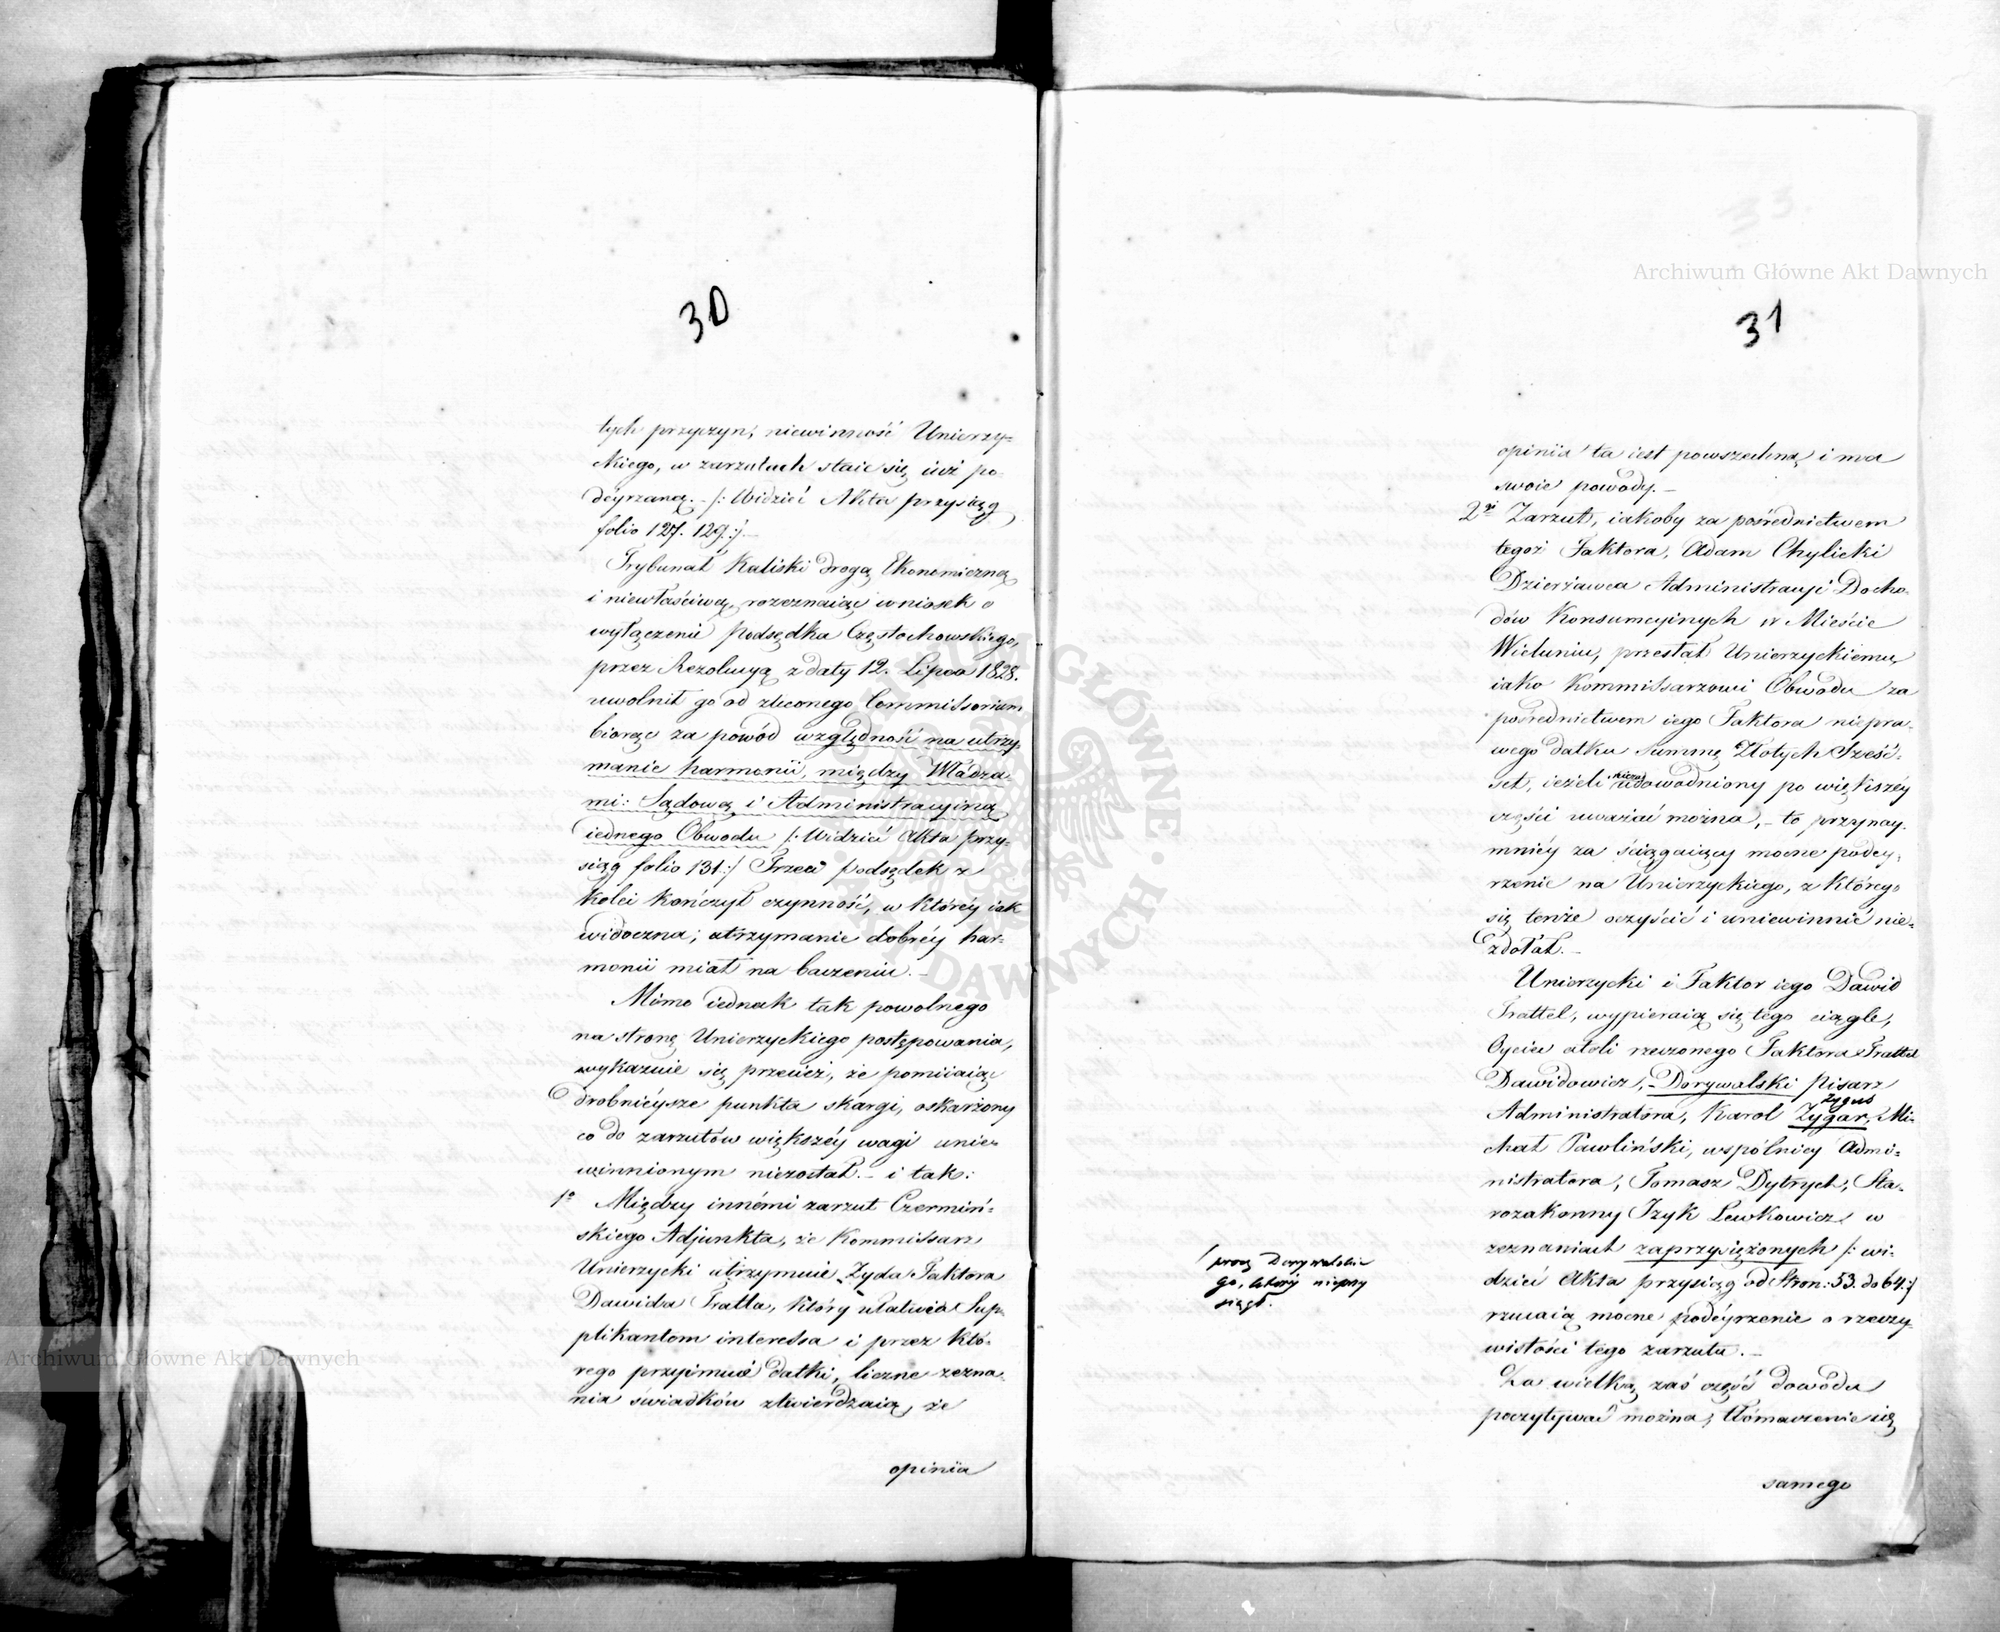 30
tych przyczyn, niewinność Unierzy-
ckiego, w zarzutach staie się iuż po-
deyrzaną. - /: Widzieć Akta przysiąg
folio 127. 129 :/ -
Trybunał Kaliski drogą Ekonomiczną
i niewłaściwą, rozeznaiąc wniosek o
wyłączenie Podsędka Częstochowskiego,
przez Rezolucyą z daty 12. Lipca 1828.
uwolnił go od zleconego Commissorium
biorąc za powód względność na utrzy-
manie harmonii, między Władza-
mi: Sądową i Administracyiną
iednego Obwodu /: Widzieć Akta przy-
siąg folio 131 :/ Trzeci podsędek z
kolei kończył czynność, w któréy iak
widoczna, utrzymanie dobréy har-
monii miał na baczeniu. -
Mimo iednak tak powolnego
na stronę Unierzyckiego postępowania,
wykazuie się przecież, że pomiiaiąc
drobnieysze punkta skargi, oskarżony
co do zarzutów większéy wagi unie-
winnionym niezostał. - i tak:
1o Między innémi zarzut Czermiń-
skiego Adjunkta, że Kommissarz
Unierzycki utrzymuie Żyda Faktora
Dawida Trattla, który ułatwia Sup-
plikantom interessa i przez któ-
rego przyimuie datki, liczne zezna-
nia świadków stwierdzaią, że
opinia
31
opiniia ta iest powszechną i ma
swoie powody. -
2re Zarzut, iakoby za pośrednictwem
tegoż Faktora, Adam Chylicki
Dzierżawca Administracyi Docho-
dów Konsumcyinych w Mieście
Wieluniu, przesłał Unierzyckiemu
iako Kommissarzowi Obwodu za
pośrednictwem iego Faktora niepra-
wego datku summę Złotych Sześć-
set, ieżeli nieza udowodniony po większéy
części uważać można, - to przynay-
mniéy za ściągaiący mocne podey-
rzenie na Unierzyckiego, z którego
się tenże oczyścić i uniewinnić nie-
zdołał. -
Unierzycki i Faktor iego Dawid
Trattel, wypieraią się tego ciągle,
Oyciec atoli rzeczonego Faktora Trattel
Dawidowicz, - Dorywalski Pisarz
Zygus
Administratora, Karol Zygar, Mi-
chał Pawliński, wspólnicy Admi-
nistratora, Tomasz Dytrych, Sta-
rozakonny Izyk Lewkowicz w
zeznaniach zaprzysiężonych /: wi-
dzieć Akta przysiąg od Stron: 53. do 64 :/
rzucaią mocne podéyrzenie o rzeczy-
wistości tego zarzutu. -
Za wielką zaś część dowodu
poczytywać można, tłómaczenie się
samego
/ prócz Dorywalskie
go, który nieprzy
siągł.
Archiwum Główne Akt Dawnych
Archiwum Główne Akt Dawnych